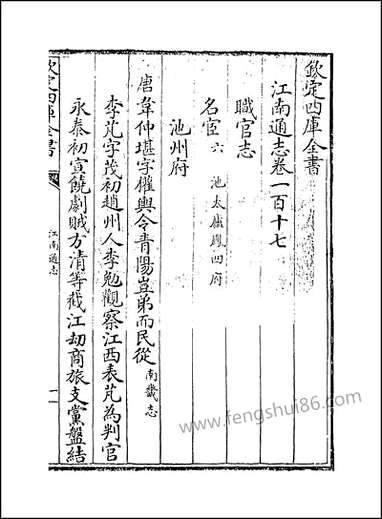 欽定四庫全書
江南通志卷一百十七
職官志
名宦六 池太廬鳳四府
池州府
唐韋仲堪字權輿令青陽豈弟而民從南畿志
李芃字茂初趙州人李勉觀察江西表芃為判官
永泰初宣饒劇賊方清等截江劫商旅支黨盤結
欽定四庫全書
江南通志
一
www.fengshui86.com